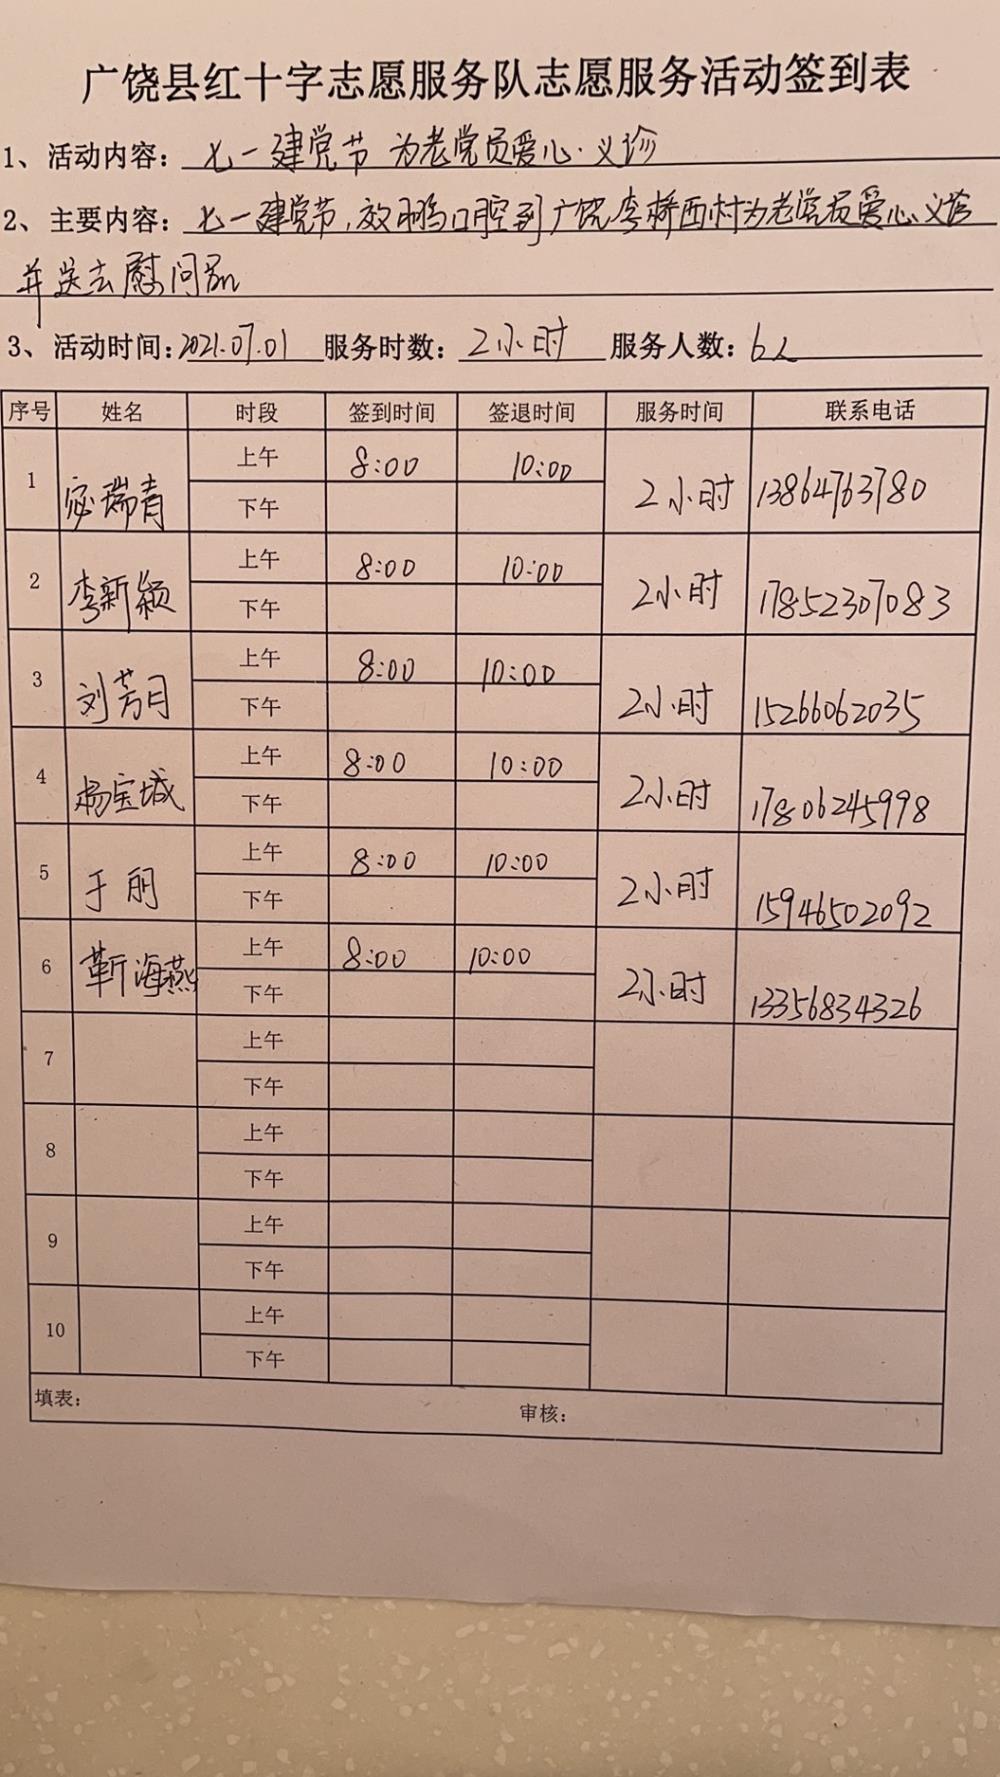 广饶县红十字志愿服务队志愿服务活动签到表
1、活动内容：七一建党节 为老党员爱心.义诊
2、主要内容：七一建党节，效鹏口腔到广饶李桥西村为老党员爱心义诊
并送去慰问品
3、活动时间：2021.07.01 服务时数：2小时 服务人数：6人
序号 姓名 时段 签到时间 签退时间 服务时间 联系电话
1 宓瑞青 上午 8:00 10:00 2小时 13864763780
下午
2 李新颖 上午 8:00 10:00 2小时 17852307083
下午
3 刘芳月 上午 8:00 10:00 2小时 15266062035
下午
4 杨宝城 上午 8:00 10:00 2小时 17806245998
下午
5 于丽 上午 8:00 10:00 2小时 15946502092
下午
6 靳海燕 上午 8:00 10:00 2小时 13356834326
下午
7 上午
下午
8 上午
下午
9 上午
下午
10 上午
下午
填表： 审核：